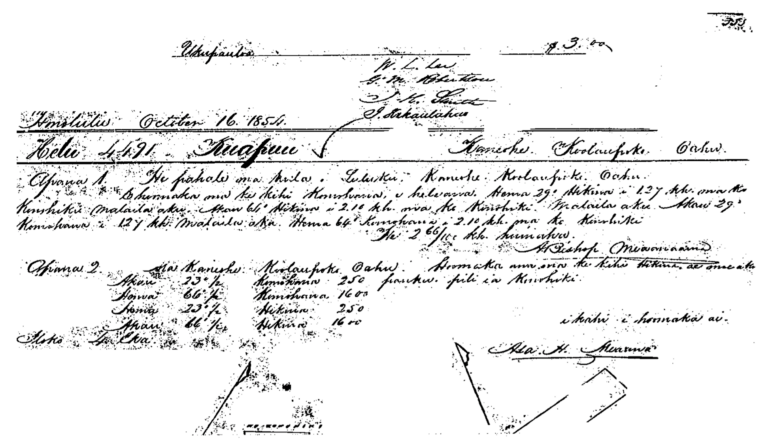 353
Ukupaulia $3.00
W. L. Lee
G. M. Robertson
J. H. Smith
J. Kekaulahao
Honolulu October 16. 1854.
Helu 4491. Kuapuu Kaneohe. Koolaupoko. Oahu.
Apana 1. He pahale ma kela i Luluku. Kaneohe. Koolaupoko. Oahu.
E hoomaka ma ke kihi Komohana, e holo ana Hema 29° Hikina i 1.27 kh. ma ko
Konohiki Malaila aku. Akau 64° Hikina i 2.10 kh. ma ko Konohiki. Malaila aku Akau 29°
Komohana i 1.27 kh. Malaila aku Hema 64° Komohana i 2.10 kh. ma ko Konohiki
He 2 66/100 kh. kuinaha.
A Bishop
Apana 2. Ma Kaneohe Koolaupoko. Oahu. Hoomaka ana ma ke kihi Hikina,
Akau 23° ½ Komohana 250 pauku. pili i ka Konohiki.
Hema 66° ½ Komohana 1600
Hema 23° ½ Hikina 250
Akau 66° ½ Hikina 1600 i kahi i hoomaka ai.
4 Eka
Asa H.